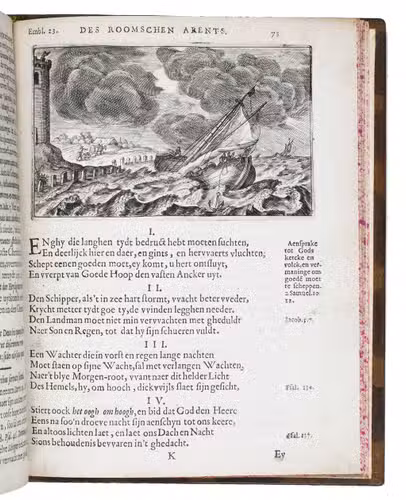 Embl. 23. DES ROOMSCHEN ARENTS. 73
I.
EN ghy die langhen tydt bedruckt hebt moeten suchten,
En deerlijck hier en daer, en gints, en hervvaerts vluchten;
Schept eenen goeden moet, ey komt, u hert ontsluyt,
En vverpt van Goede Hoop den vasten Ancker uyt.
Aensprake
tot Gods
kercke en
volck, en ver-
maninge om
goedē moet
te scheppen.
2 Samuel. 10.
12.
II.
Den Schipper, als't in zee hart stormt, vvacht beter vveder,
Krycht metter tydt goe tyde vvinden legghen neder.
Den Landman moet niet min vervvachten met gheduldt
Naer Son en Regen, tot dat hy sijn schueren vuldt.
Jacob. 5. 7.
III.
Een Wachter die in vorst en regen lange nachten
Moet staen op sijne Wacht, sal met verlangen Wachten,
Naer't blye Morgen-root, vvant naer dit helder Licht
Des Hemels, hy, om hooch, dickvvijls slaet sijn gesicht,
Psal. 130.
IV.
Stiert oock het oogh om hoogh, en bid dat God den Heere
Eens na soo'n droeve nacht sijn aenschyn tot ons keere,
En altoos lichten laet, en laet ons Dach en Nacht
Sions behoudenis bevvaren in't ghedacht.
Psal. 137.
K Ey